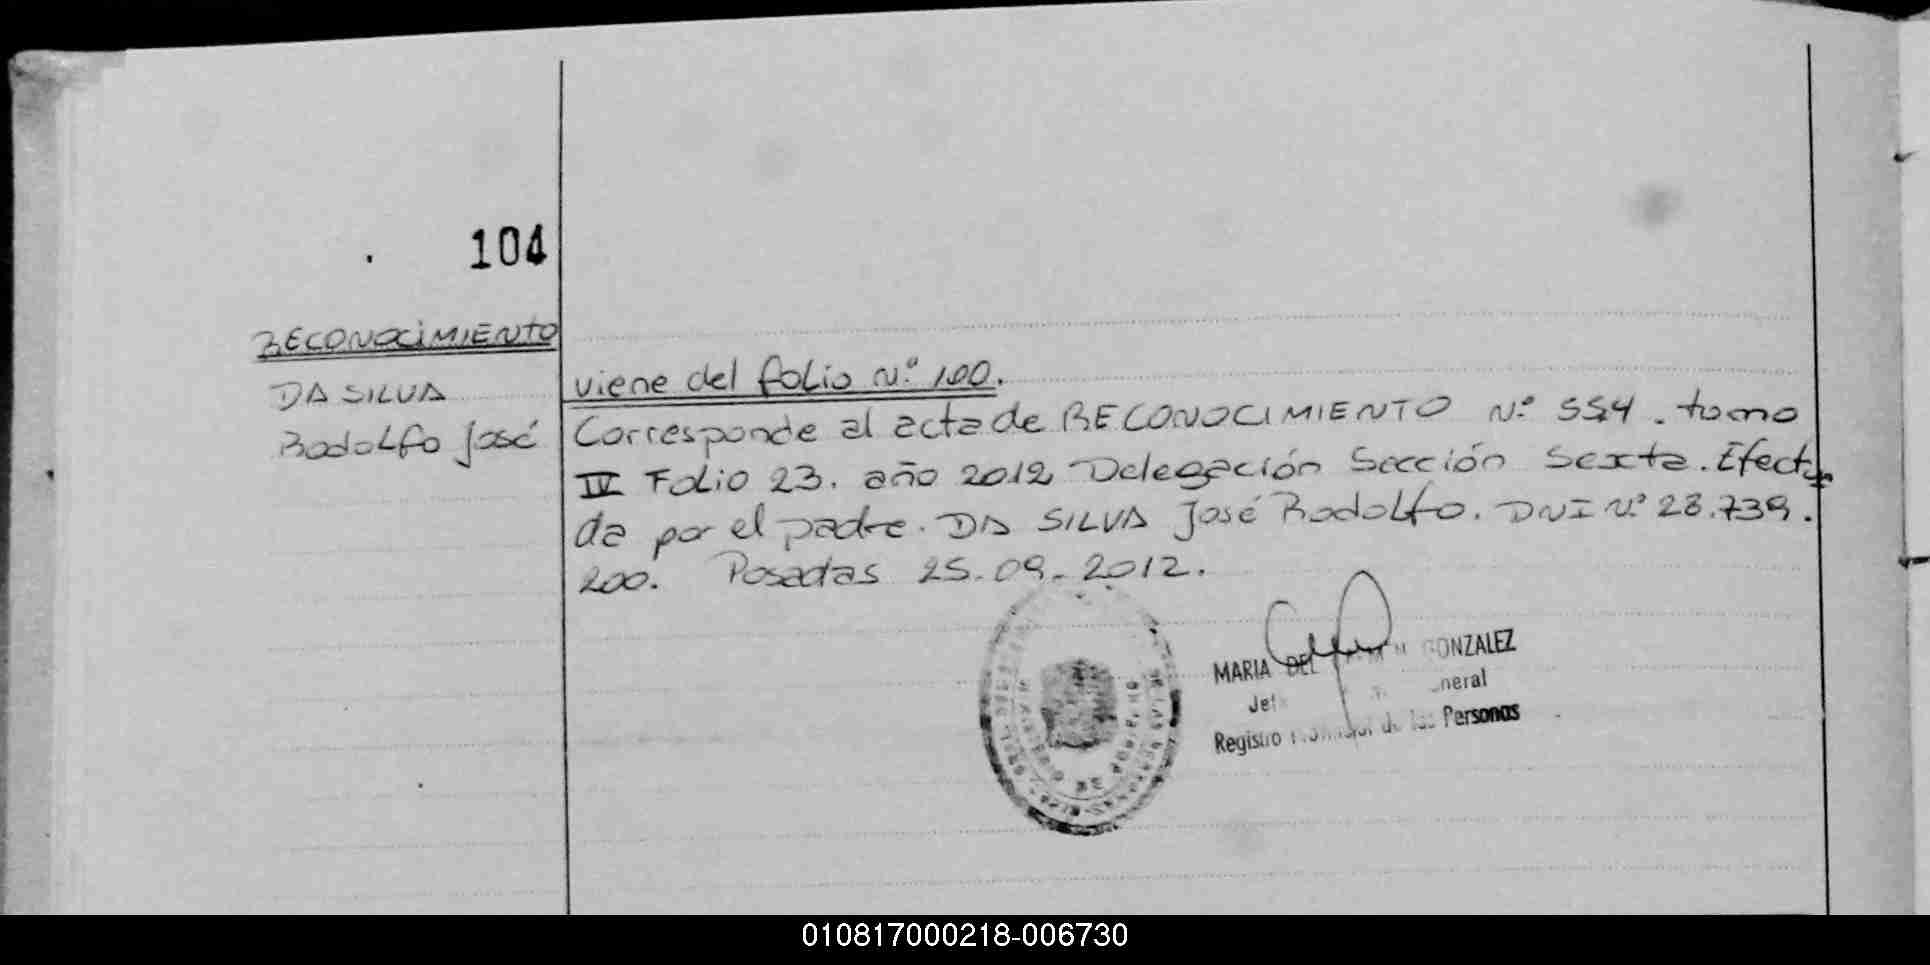 104
RECONOCIMIENTO
DA SILVA
Rodolfo José
viene del folio N.º 100.
Corresponde al acta de RECONOCIMIENTO N.º 554. tomo
IV Folio 23. año 2012 Delegación Sección Sexta. Efectua
da por el padre. DA SILVA José Rodolfo. DNI N.º 28.739.
200. Posadas 25-09-2012.
MARIA DEL GONZALEZ
Registro de las Personas
010817000218-006730